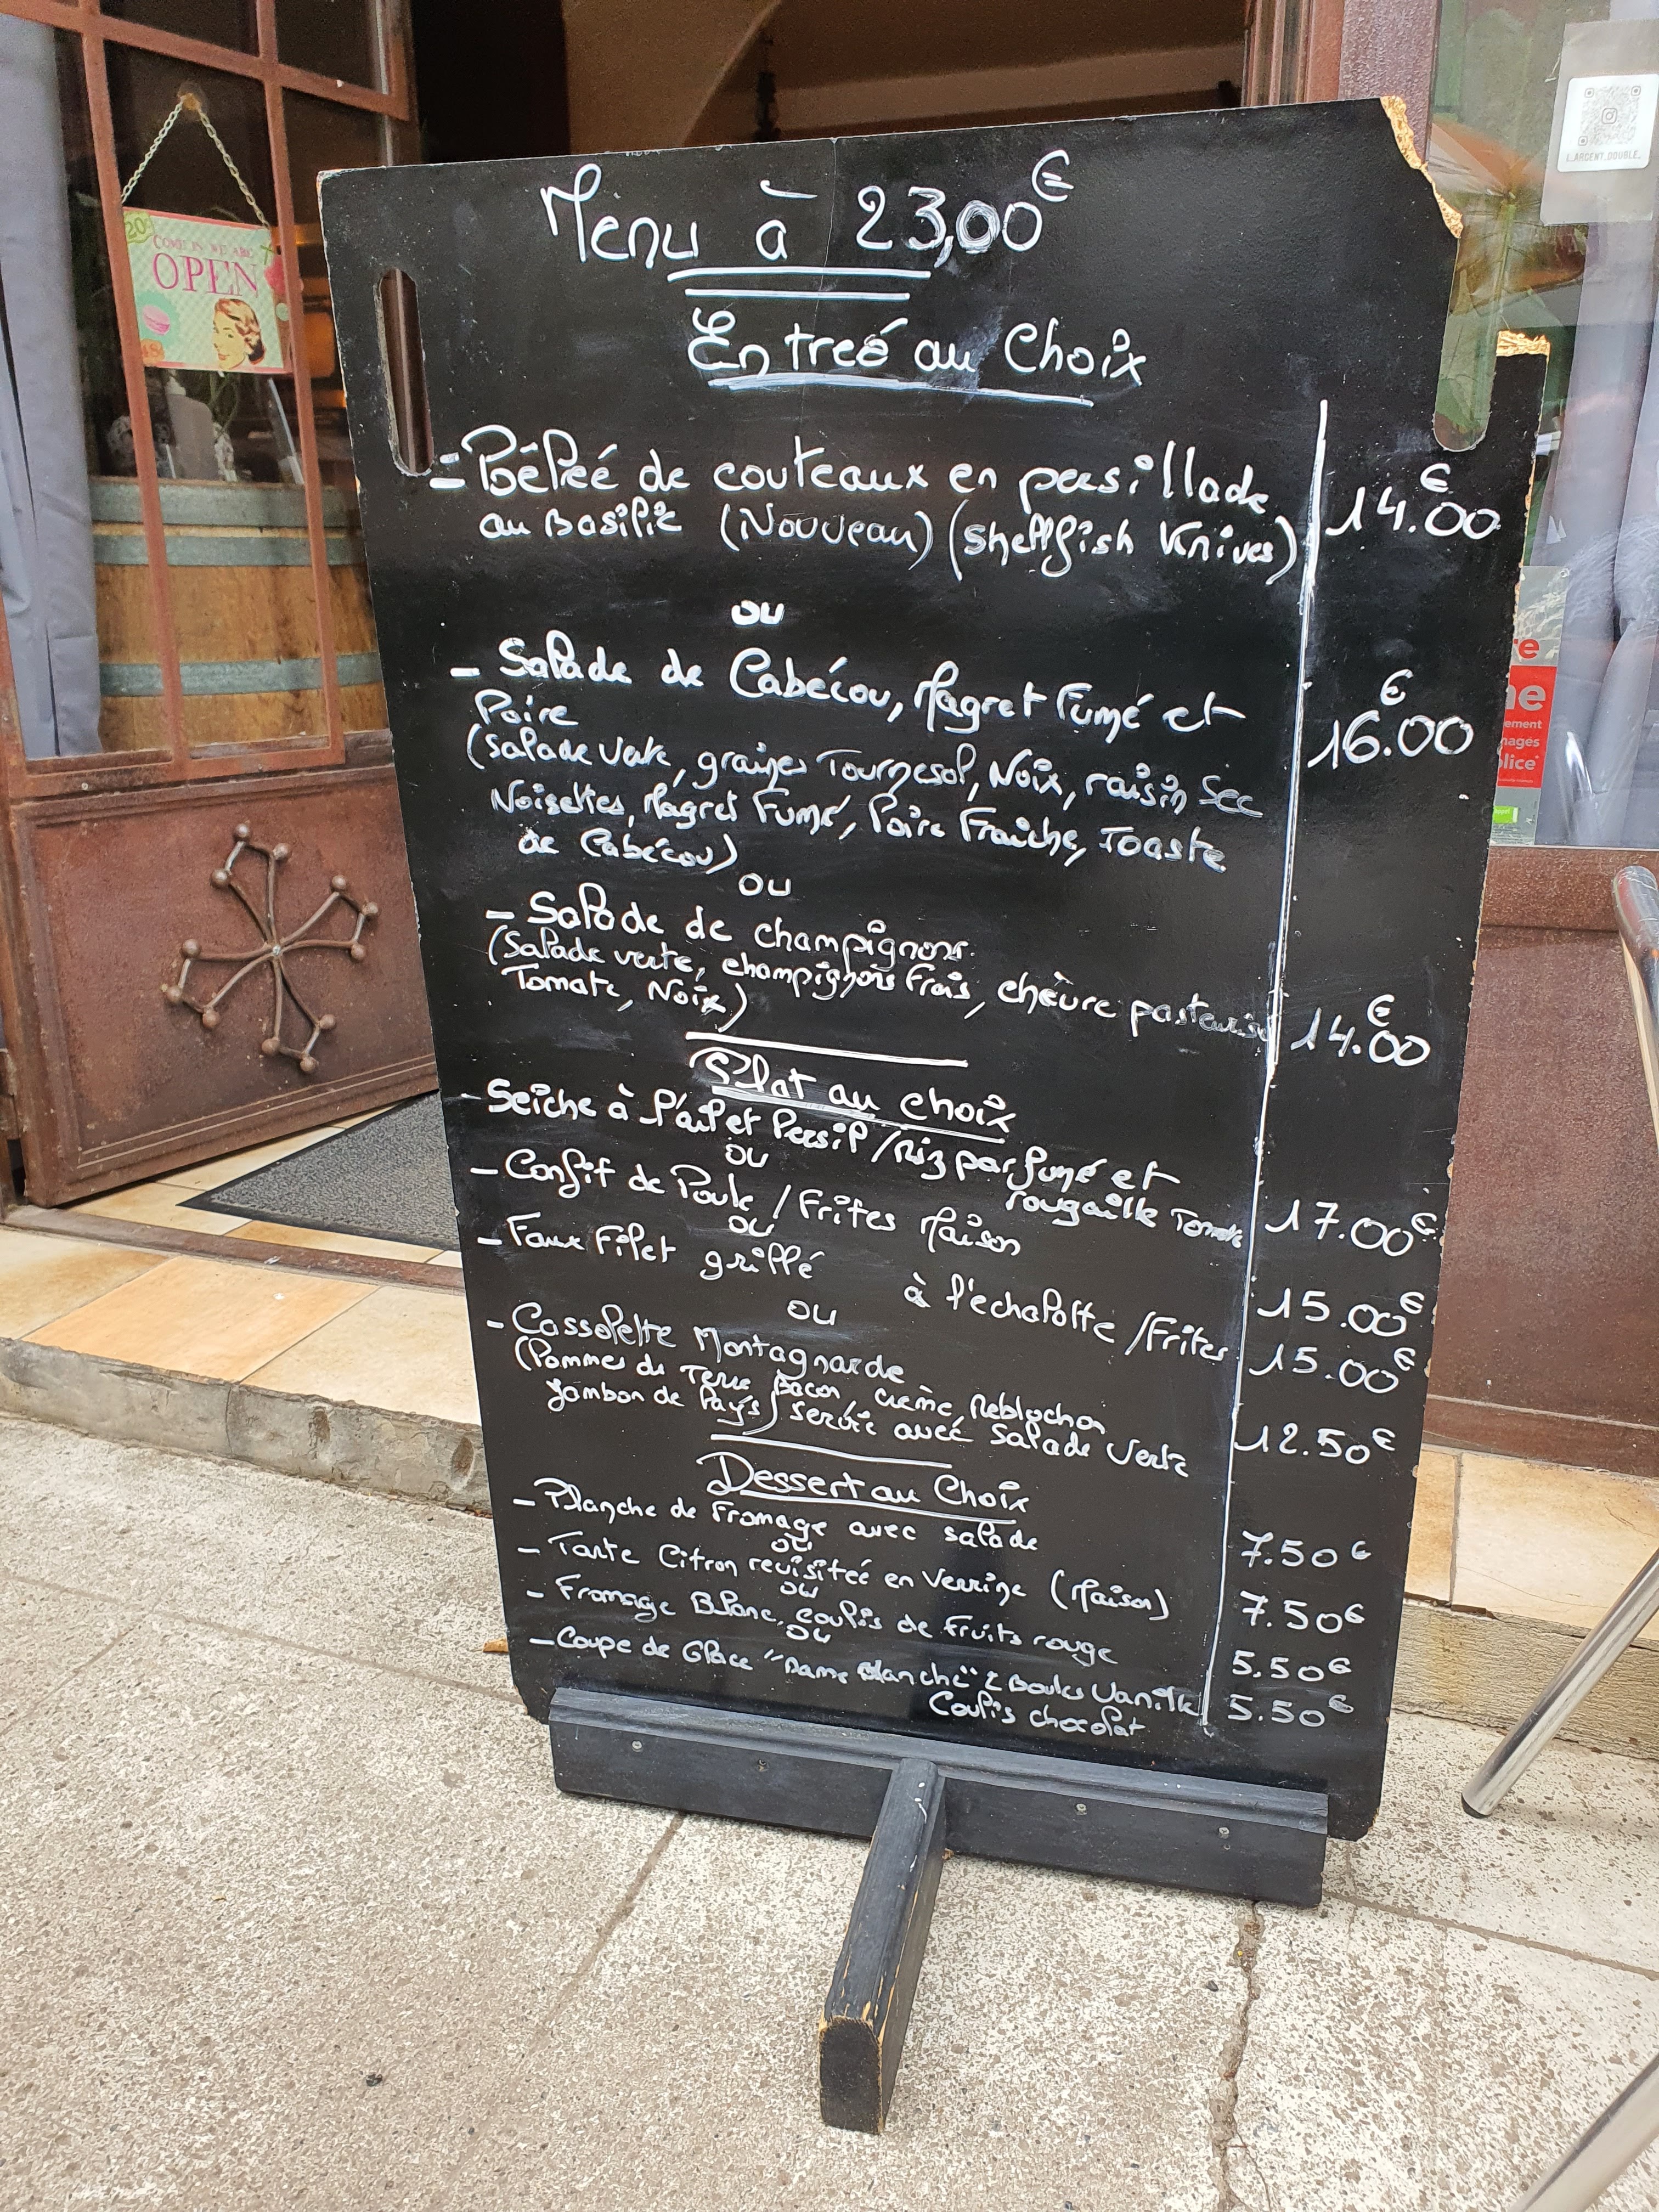 Menu à 23,00€
Entreé au Choix
- Pôêleé de couteaux en persillade
au Basilic (Nouveau) (Shellfish Knives)
14.00€
ou
- Salade de Cabécou, Magret Fumé et
Poire
16.00€
(Salade verte, graines Tournesol, Noix, raisin Sec
Noisettes, Magret Fumé, Poire Fraiche, Toaste
de Cabécou)
ou
- Salade de champignons.
(Salade verte, champignons Frais, chèvre pasteurisé
Tomate, Noix)
14.00€
Plat au choix
- Seiche à l'ail et Persil / Riz parfumé et
rougaille Tomate
17.00€
ou
- Confit de Poule / Frites Maison
15.00€
ou
- Faux Filet grillé à l'echalotte / Frites
15.00€
ou
- Cassolette Montagnarde
(Pommes de Terre Bacon crème Reblochon
Jambon de Pays) servie avec Salade Verte
12.50€
Dessert au Choix
- Planche de Fromage avec salade
7.50€
ou
- Tarte Citron revisiteé en Verrine (Maison)
7.50€
ou
- Fromage Blanc, coulis de Fruits rouge
5.50€
ou
- Coupe de Glace "Dame Blanche" 2 Boules Vanille
Coulis chocolat
5.50€
COME IN WE ARE
OPEN
L_ARGENT_DOUBLE_